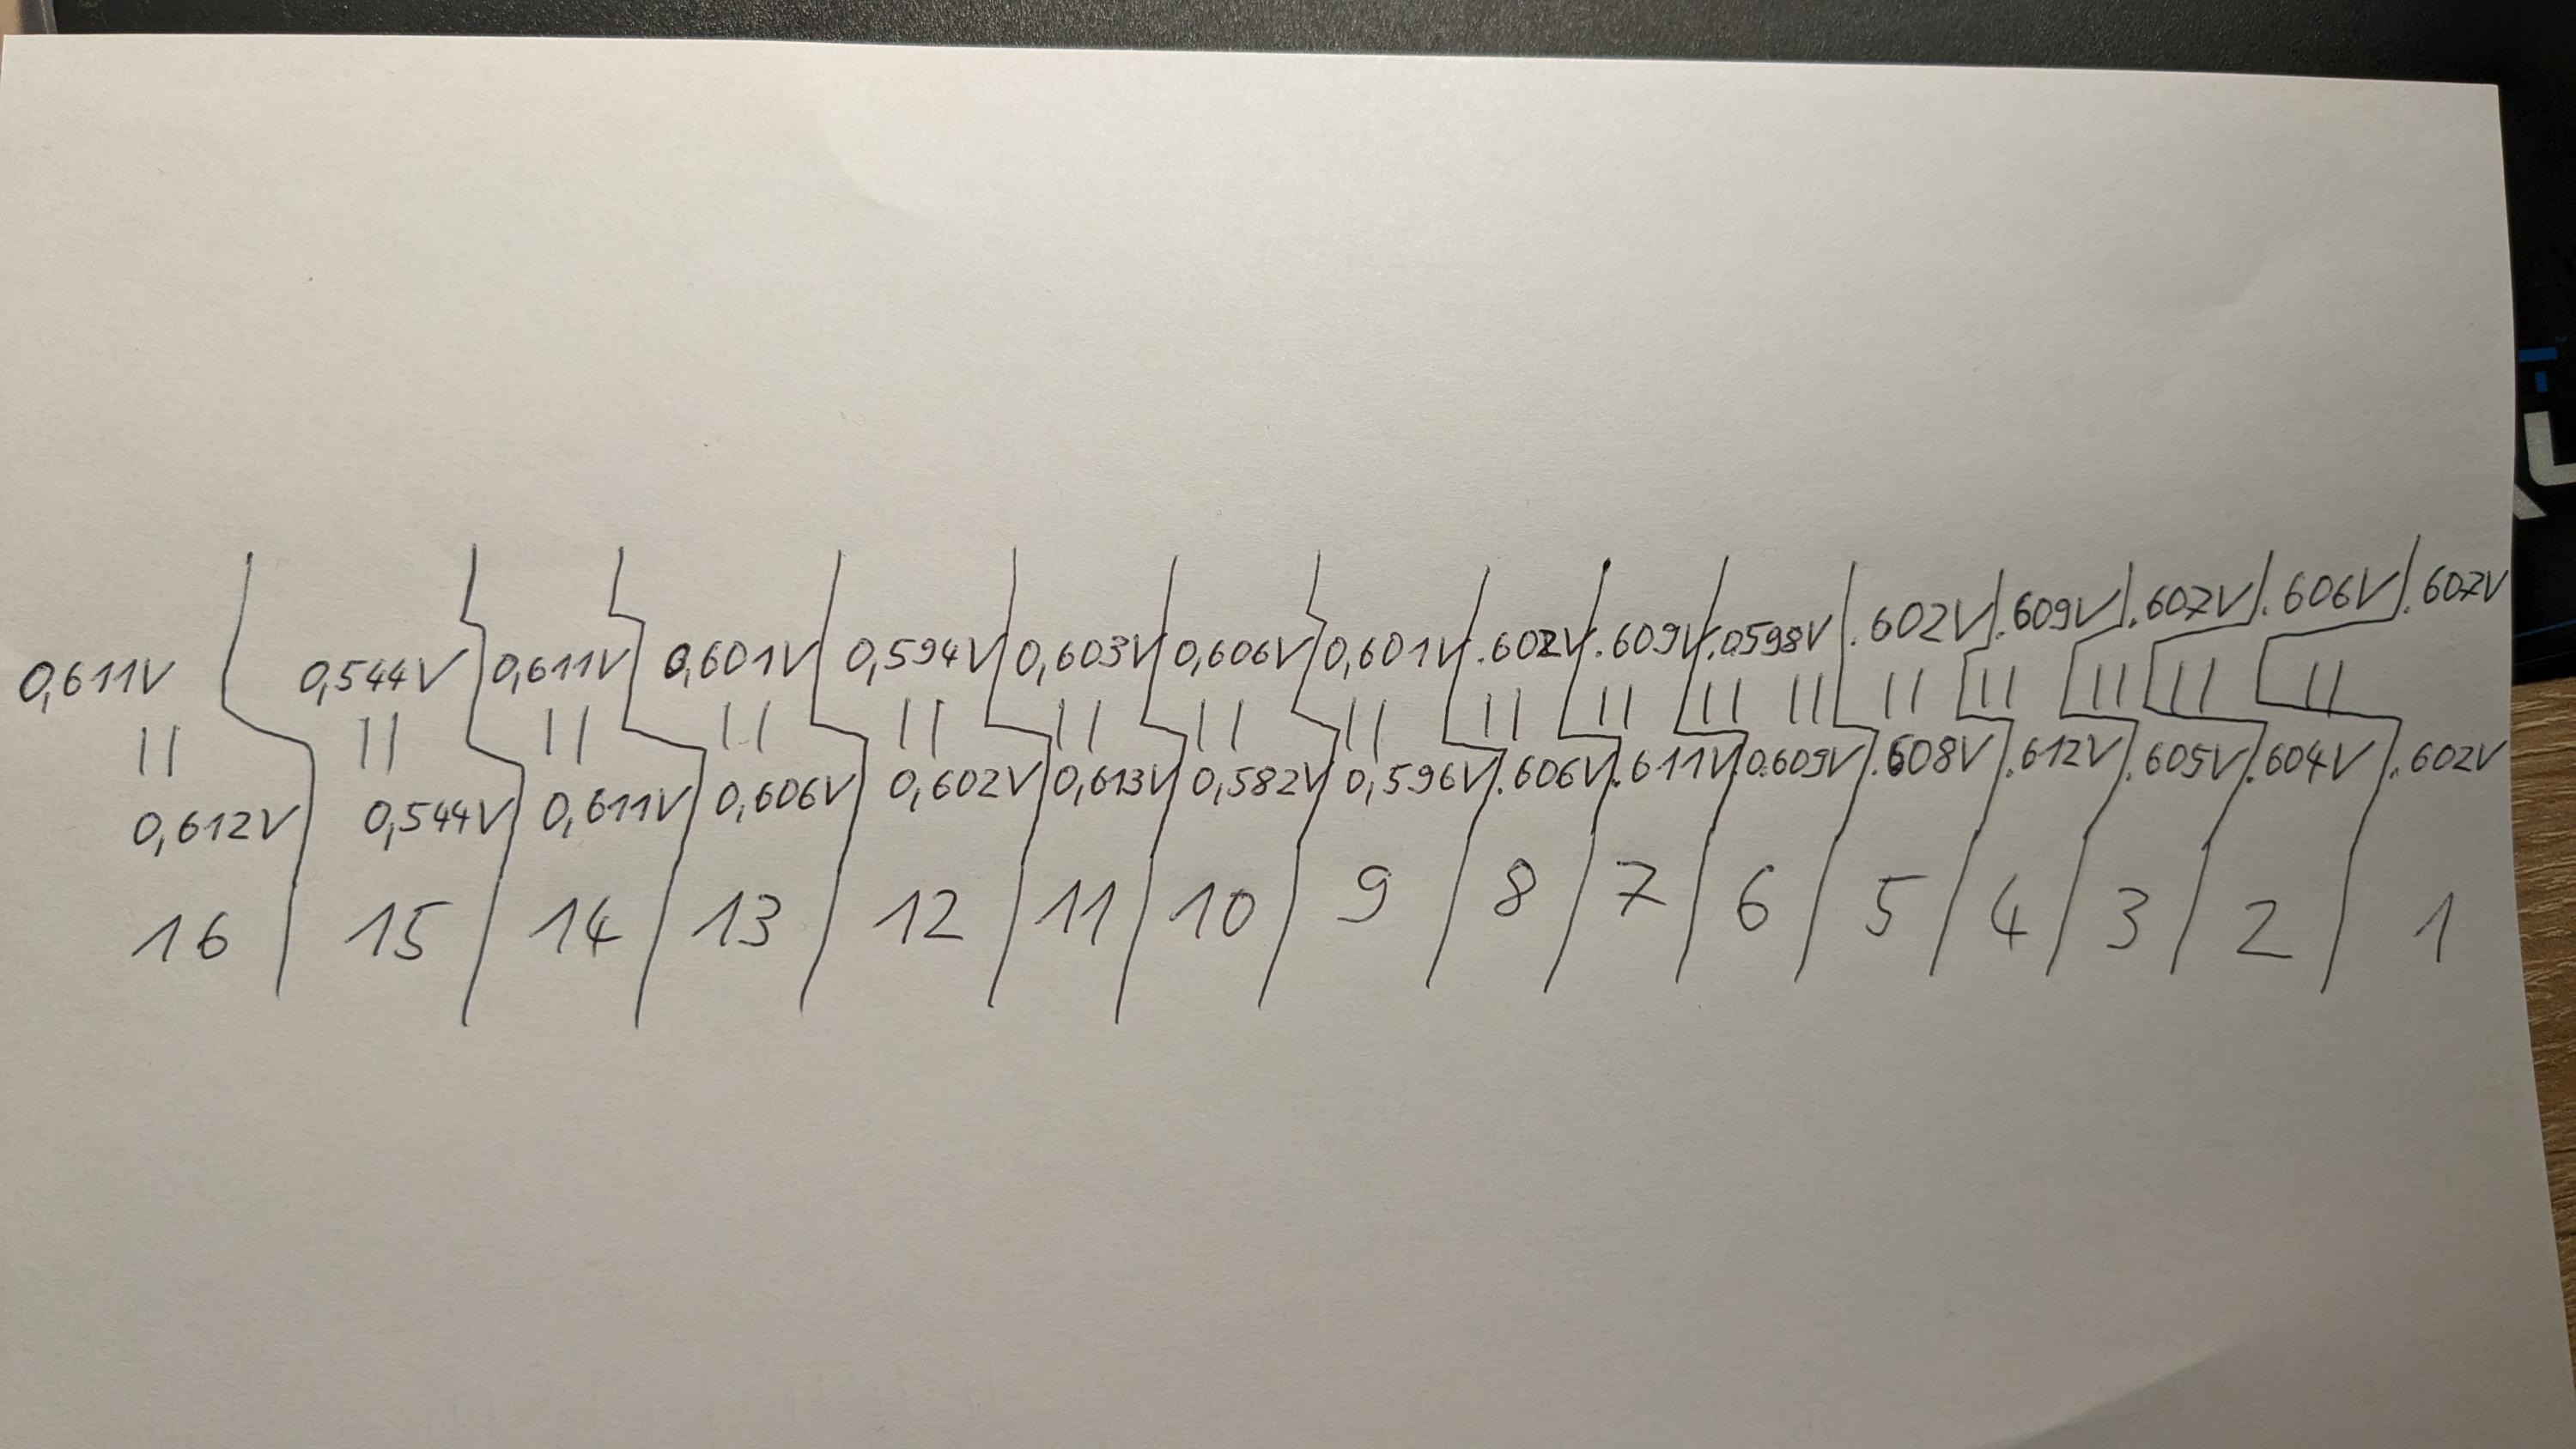 0,611V 0,544V 0,611V 0,601V 0,594V 0,603V 0,606V 0,601V .602V .609V .0598V .602V .609V .607V .606V .607V
|| || || || || || || || || || || || || || || ||
0,612V 0,544V 0,611V 0,606V 0,602V 0,613V 0,582V 0,596V .606V .611V 0.609V .608V .612V .605V .604V .602V
16 15 14 13 12 11 10 9 8 7 6 5 4 3 2 1